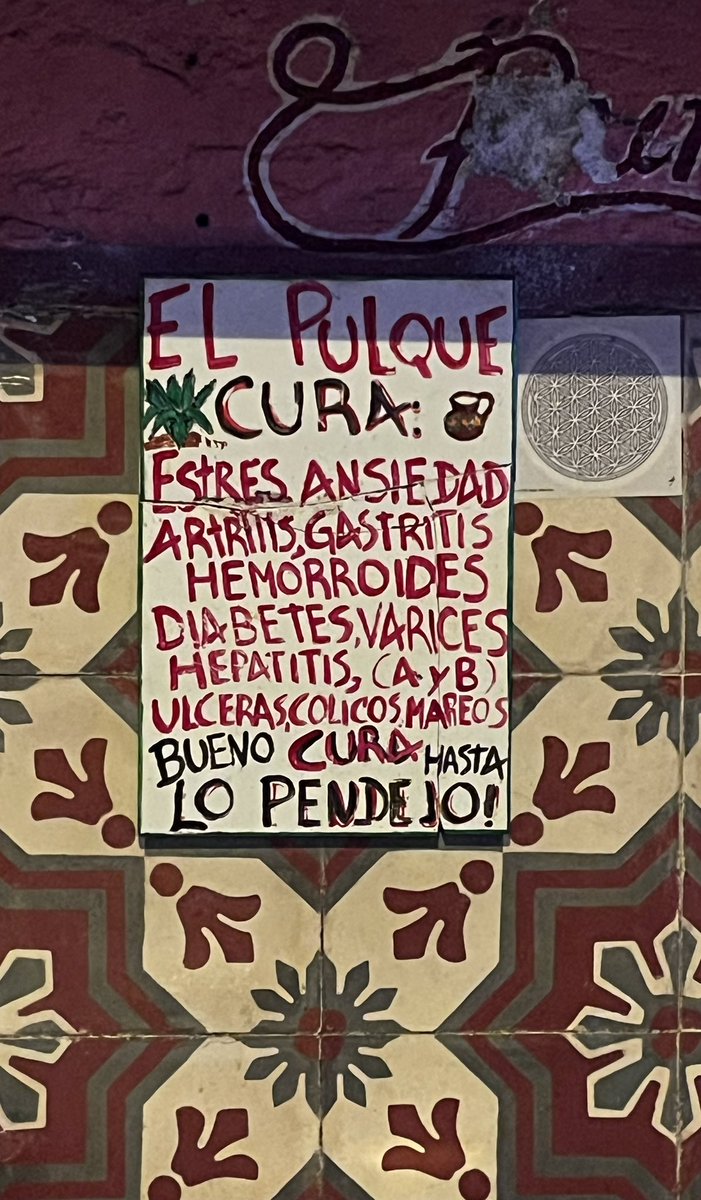 EL PULQUE
CURA:
ESTRES, ANSIEDAD
ARTRITIS, GASTRITIS
HEMORROIDES
DIABETES, VARICES
HEPATITIS, (A y B)
ULCERAS, COLICOS, MAREOS
BUENO CURA HASTA
LO PENDEJO!